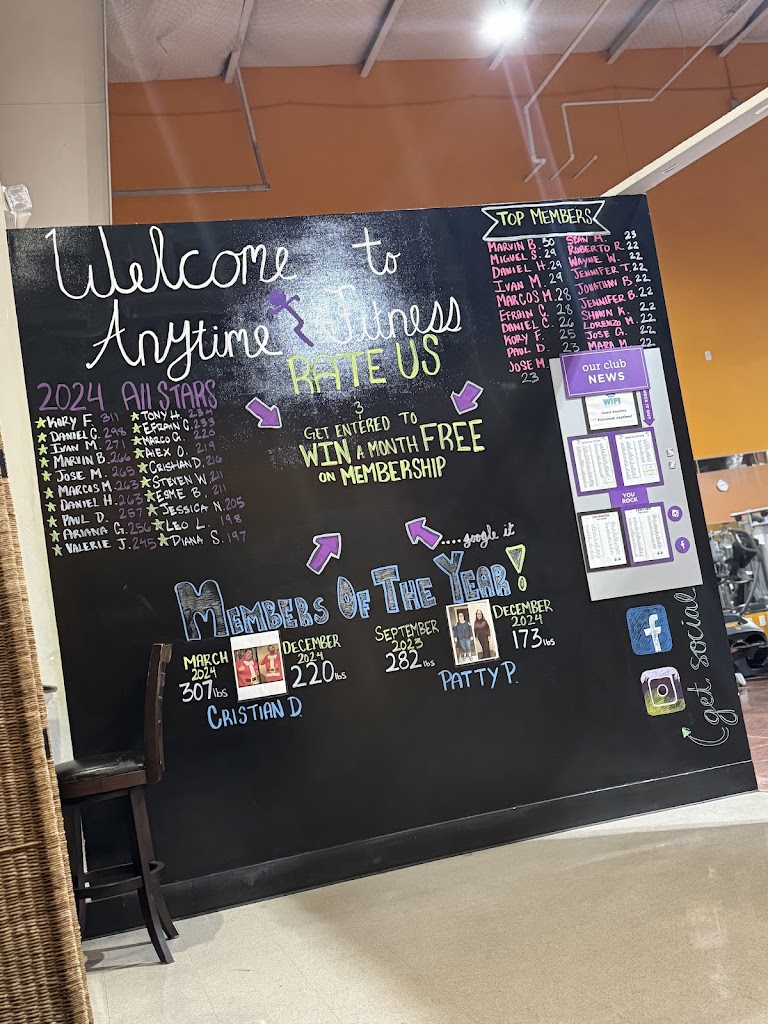 Welcome to
Anytime Fitness
RATE US
3
GET ENTERED TO
WIN A MONTH FREE
ON MEMBERSHIP
....google it
2024 All STARS
KORY F. 311
DANIEL C. 298
IVAN M. 271
MARVIN B. 266
JOSE M. 265
MARCOS M. 263
DANIEL H. 263
PAUL D. 257
ARIANA G. 256
VALERIE J. 245
TONY H.
EFRAIN C. 233
MARCO G.
ALEX O. 219
CRISHIAN D. 216
STEVEN W. 211
ESME B. 211
JESSICA N. 205
LEO L. 198
DIANA S. 197
TOP MEMBERS
MARVIN B. 30
MIGUEL S. 29
DANIEL H. 29
IVAN M. 29
MARCOS M. 28
EFRAIN C. 28
DANIEL C. 26
KORY F. 25
PAUL D. 23
JOSE M.
23
SEAN M. 23
ROBERTO R. 22
WAYNE W. 22
JENNIFER T. 22
JONATHAN B. 22
JENNIFER B. 22
SHAWN K. 22
LORENZO M. 22
JOSE G. 22
MARA M. 22
our club
NEWS
WIFI
YOU
ROCK
MEMBERS OF THE YEAR!
MARCH
2024
307 lbs
DECEMBER
2024
220 lbs
CRISTIAN D.
SEPTEMBER
2023
282 lbs
DECEMBER
2024
173 lbs
PATTY P.
get social